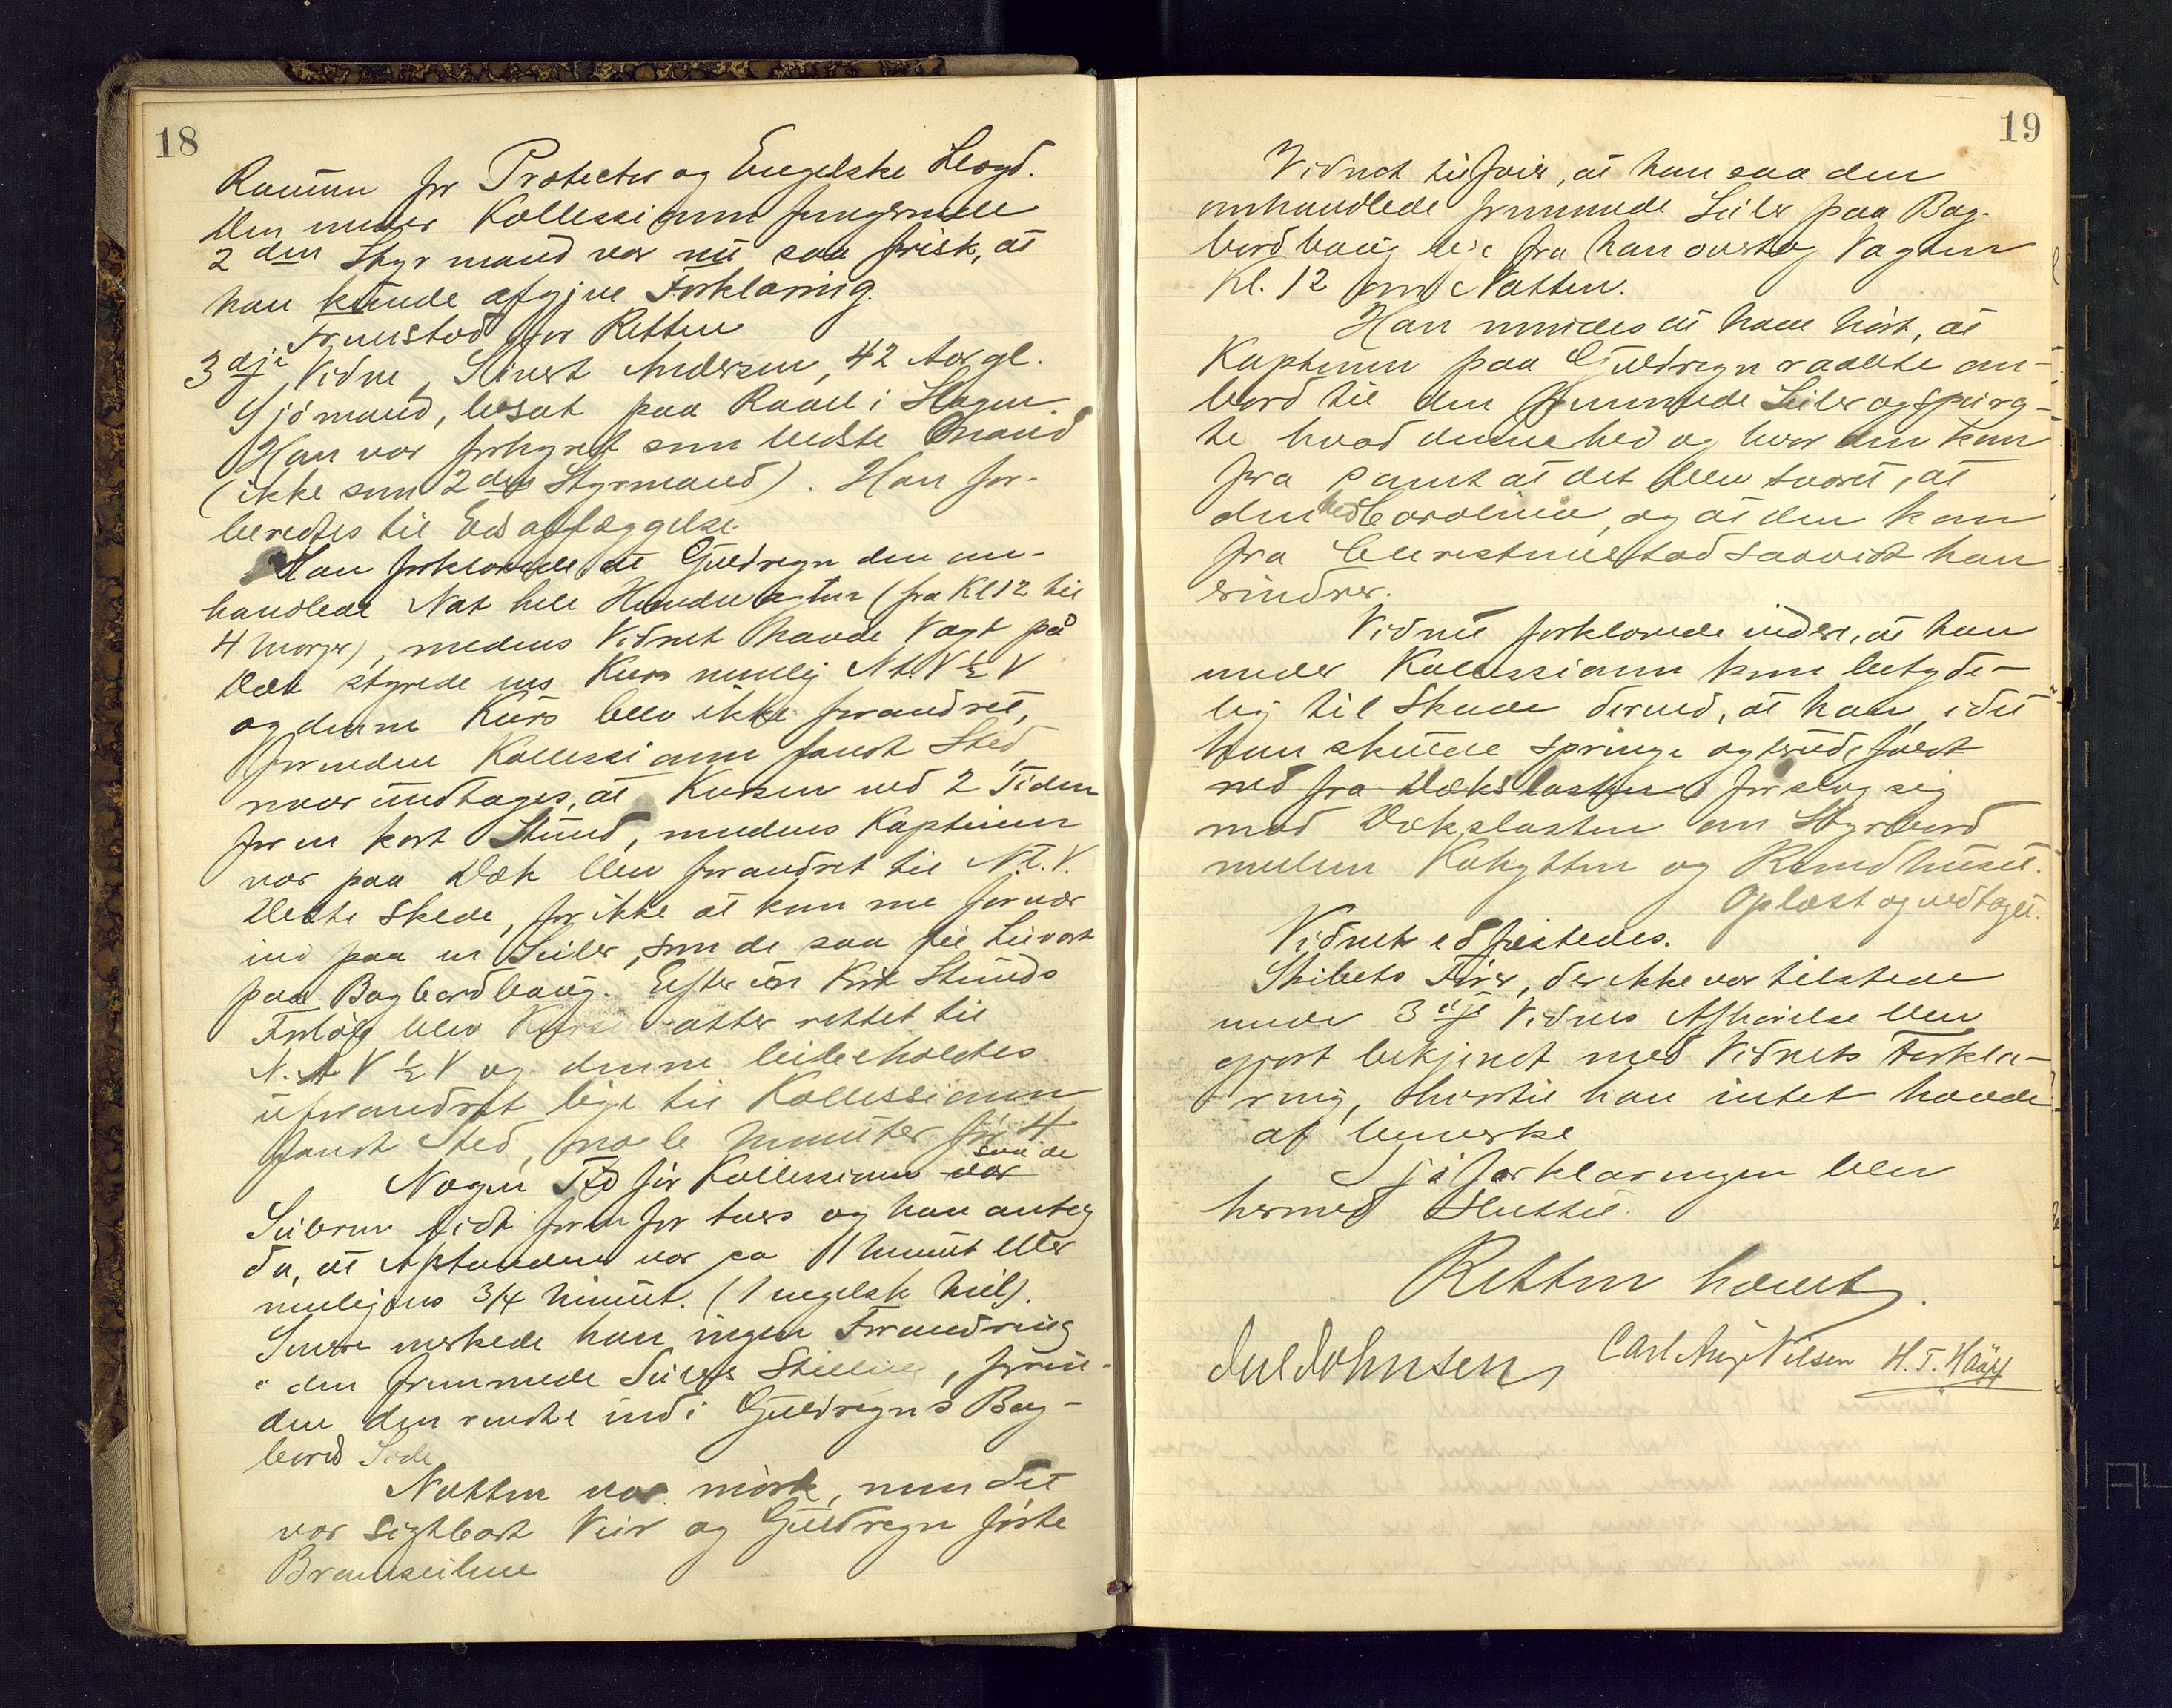 18
Rammen for Protector og Engelske Lloyd.
Den under Kollessionen fungerende
2den Styrmand var nu saa frisk, at
han kunde afgive Forklaring.
Fremstod for Retten
3dje Vidne, Sivert Andersen, 42 Aar gl.
Sjömand, bosat paa Raael i Slagen.
Han var forhyret som bedste Mand
(ikke som 2den Styrmand). Han for-
beredtes til Eds aflæggelse.
Han forklarede at Guldregn den om-
handlede Nat hele Hundevagten (fra Kl 12 til
4 Morgen), medens Vidnet havde Vagt på
Dæk styrede en Kurs nemlig N.t.V ½ V
og denne Kurs blev ikke forandret,
forinden Kollessionen fandt Sted
naar undtages, at Kursen ved 2 Tiden
for en kort Stund, medens Kapteinen
var paa Dæk blev forandret til N.t.V.
Dette skede, for ikke at komme for nær
ind paa en Seiler, som de saa til Luvart
paa Bagbordbaug. Efter en kort Stunds
Forløb blev Kursen atter rettet til
N.t V ½ V og denne beibeholdtes
uforandret lige til Kollessionen
fandt Sted, nogle Minuter før 4
saa de
Nogen Tid før Kollessionen var
Seileren lidt foren for tvers og han antog
da, at Afstanden var ca 1 Minut eller
muligens 3/4 Minut. (1 engelsk Mil).
Senere merkede han ingen Forandring
i den fremmede Seilers Stilling, forin-
den den rendte ind i Guldregns Bag-
bord Side
Natten var mørk, men det
var sigtbart Veir og Guldregn førte
Bramseilene
19
Vidnet tilføier, at han saa den
omhandlede fremmede Seiler paa Bag-
bordbaug lige fra han overtog Vagten
Kl. 12 om Natten.
Han mindes at have hørt, at
Kapteinen paa Guldregn raabte om-
bord til den fremmede Seiler og spurg-
te hvad denne hed og hvor den kom
fra samt at det blev svaret, at
den hed Carolina, og at den kom
fra Christinestad saavidt han
erindrer.
Vidnet forklarede videre, at han
under Kollessionen kom betyde-
lig til Skade derved, at han, idet
han skulde springe og
ned fra Dækslasten forslog sig
mod Dækslasten om Styrbord
mellem Kahytten og Rundhuset.
Oplæst og vedtaget.
Vidnet edfæstedes.
Skibets Fører, der ikke var tilstede
under 3dje Vidnes Afhørelse blev
gjort bekjendt med Vidnets Forkla-
ring, hvortil han intet havde
at bemerke.
Sjøforklaringen blev
hermed sluttet.
Retten hævet.
Jul Johnsen, Carl Aug. Nilsen H. T. Haajj